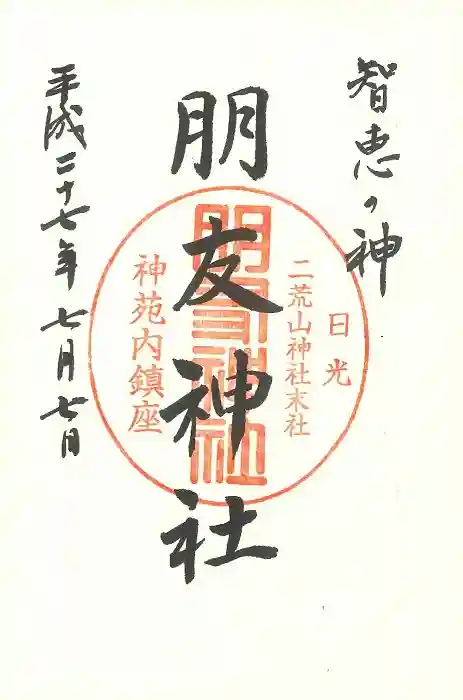 智恵の神
日光
二荒山神社末社
朋友神社
朋友神社
神苑内鎮座
平成二十七年七月七日